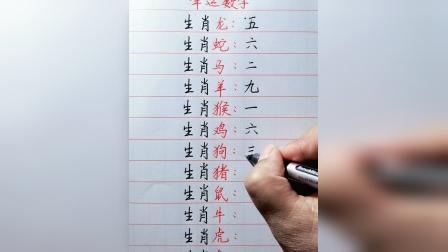 幸运数字
生肖龙：五
生肖蛇：六
生肖马：二
生肖羊：九
生肖猴：一
生肖鸡：六
生肖狗：三
生肖猪：
生肖鼠：
生肖牛：
生肖虎：
生肖